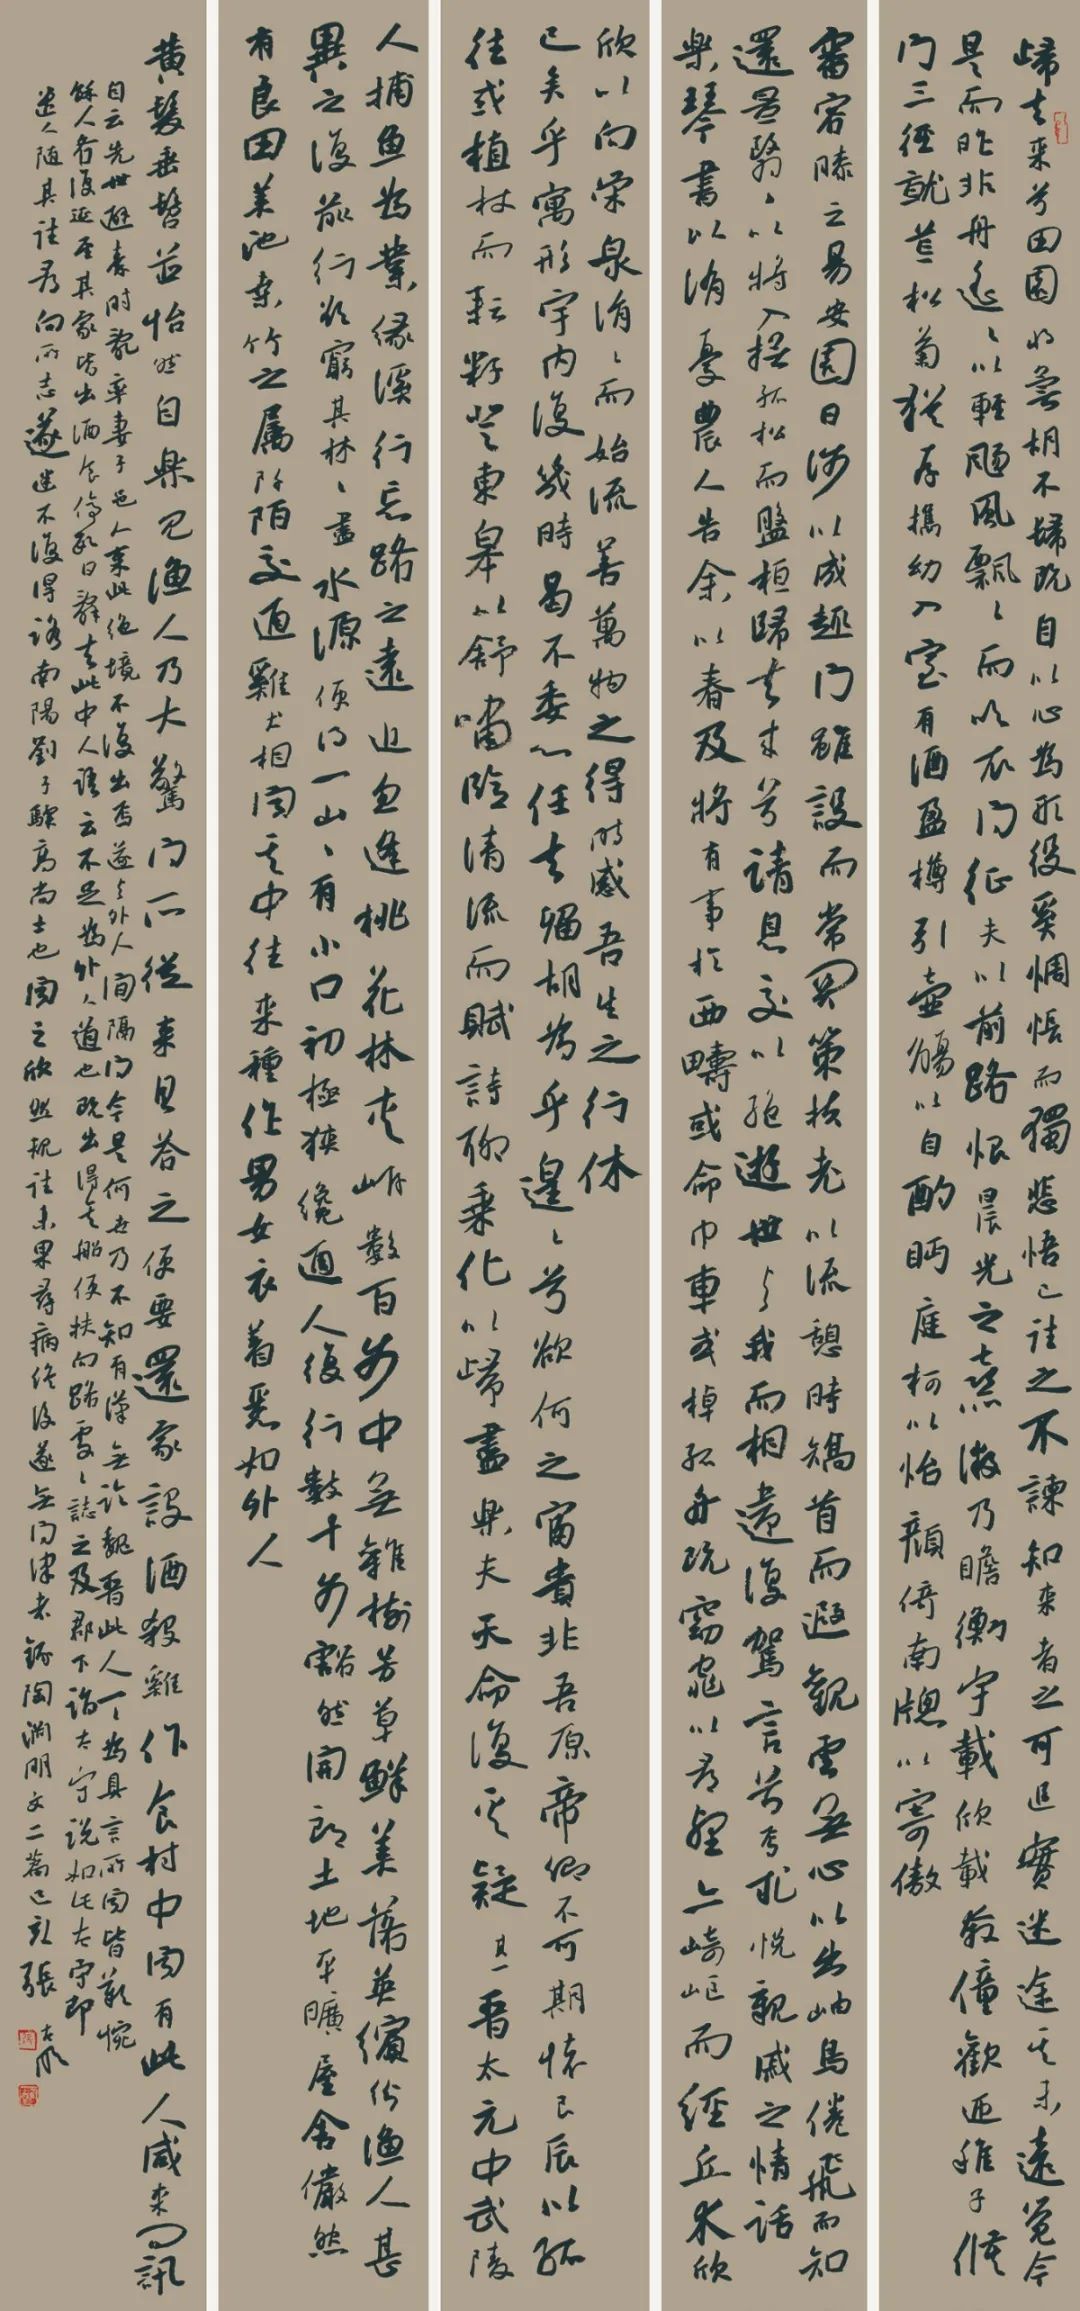 歸去來兮田園將蕪胡不歸既自以心為形役奚惆悵而獨悲悟已往之不諫知來者之可追實迷途其未遠覺今
是而昨非舟遙〻以輕颺風飄〻而吹衣問征夫以前路恨晨光之熹微乃瞻衡宇載欣載奔僮歡迎稚子候
門三徑就荒松菊猶存攜幼入室有酒盈樽引壺觴以自酌眄庭柯以怡顏倚南牕以寄傲
審容膝之易安園日涉以成趣門雖設而常關策扶老以流憩時矯首而遐觀雲無心以出岫鳥倦飛而知
還景翳〻以將入撫孤松而盤桓歸去來兮請息交以絕遊世與我而相遺復駕言兮焉求悅親戚之情話
樂琴書以消憂農人告余以春及將有事於西疇或命巾車或棹孤舟既窈窕以尋壑亦崎嶇而經丘木欣
欣以向榮泉涓〻而始流善萬物之得時感吾生之行休
已矣乎寓形宇內復幾時曷不委心任去留胡為乎遑〻兮欲何之富貴非吾願帝鄉不可期懷良辰以孤
往或植杖而耘耔登東皋以舒嘯臨清流而賦詩聊乘化以歸盡樂夫天命復奚疑其一晉太元中武陵
人捕魚為業緣溪行忘路之遠近忽逢桃花林夾岸數百步中無雜樹芳草鮮美落英繽紛漁人甚
異之復前行欲窮其林〻盡水源便得一山〻有小口初極狹纔通人復行數十步豁然開朗土地平曠屋舍儼然
有良田美池桑竹之屬阡陌交通雞犬相聞其中往來種作男女衣着悉如外人
黃髮垂髫並怡然自樂見漁人乃大驚問所從來具答之便要還家設酒殺雞作食村中聞有此人咸來問訊
自云先世避秦時亂率妻子邑人來此絕境不復出焉遂與外人間隔問今是何世乃不知有漢無論魏晉此人一〻為具言所聞皆歎惋
餘人各復延至其家皆出酒食停數日辭去此中人語云不足為外人道也既出得其船便扶向路處〻誌之及郡下詣太守說如此太守即
遣人隨其往尋向所志遂迷不復得路南陽劉子驥高尚士也聞之欣然規往未果尋病終後遂無問津者錄陶淵明文二篇